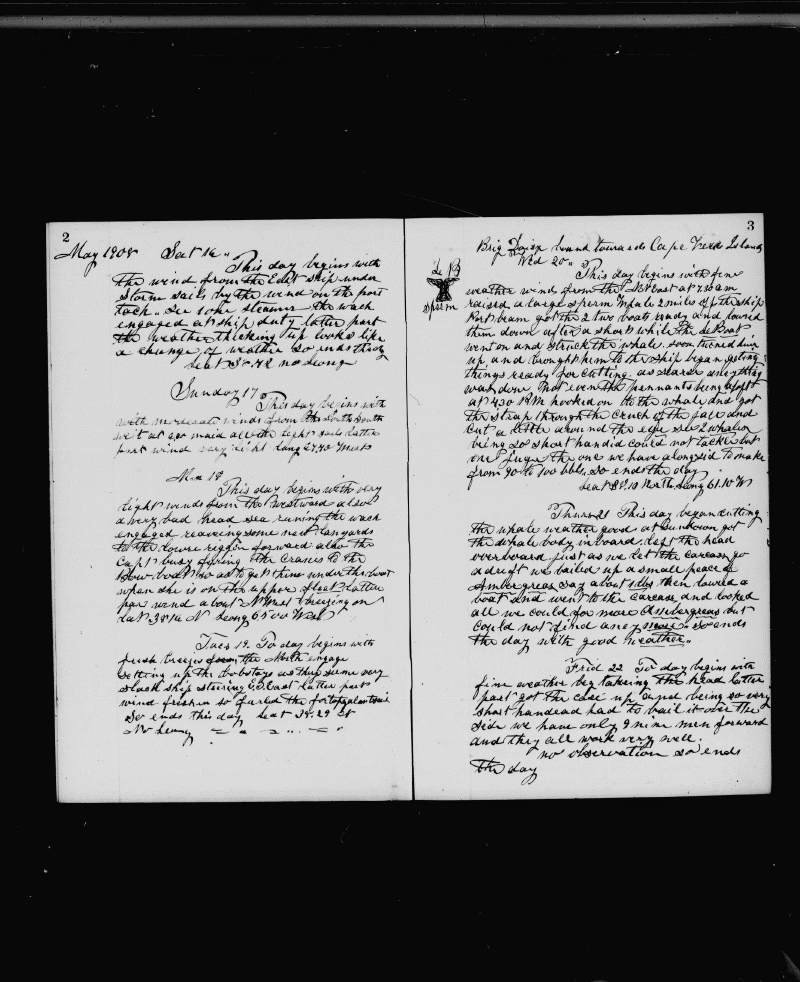 2
May 1908 Sat 16
This day begins with
the wind from the East ship under
Storm sails by the wind on the port
tack. See one steamer the wach
engaged at ship duty latter part
the weather thicking up looks like
a change of weather So ends this day
Lat 38.42 no Long
Sunday 17
This day begins with
with moderate winds from the South South
we't at maid all the light sails latter
part wind very light Long West
Mon 18
This day begins with very
light winds from the Westward also
a very bad head sea runing the wach
engaged reaveing some new lanyards
to the lower rigon forward also the
Capt busy fixing the Cranes to the
Bow boat so as to get them under the boat
when she is on the upper latter
par wind about N West breezing on
Lat N Long 65.00 West
Tues 19. To day begins with
fresh breeze from the North engage
setting up the bobstays as they seme very
slack ship stering E.S.East latter part
wind freshen so furled the fortopgalantsail
So ends this day Lat 38.29
No Long
3
Brig bound towards Cape Verds Islands
Wed 20
This day begins with fine
La B
sperm
weather wind from the East at 7.30 am
raised a large Sperm Whale 2 miles off the ship
Port beam got the 2 two boats ready and lowred
them down after a short while the La Boat
went on and struck the whale soon turned him
up, and brought him to the ship began geting
things ready for cutting. as scarse aney thing
was done. Not even the pennants being aloft
at 4.30 P.M. hooked on to the whale and got
the strap through the cruch of the jaw and
cut a little around the eye see 2 whales
being so short handid could not tackle but
one. juge the one we have alongsid to make
from 90 to 100 bbls. So ends the day
Lat 38.10 North. Long 61.10 W
Thurs 21 This day began cutting
the whale weather good at Sundown got
the whale body in board. left the head
overboard just as we let the carcas go
adreft we bailed up a small peace of
Ambergreas say about lbs then lowred a
boat and went to the carcase and looked
all we could for more Ambergreas but
could not find aney more. So ends
the day with good weather
Frid 22 To day begins with
fine weather beg takeing the head latter
part got the case up and being so very
short handead had to bail it over the
side we have only 9 nine men forward
and they all work very well.
no observation so ends
the day